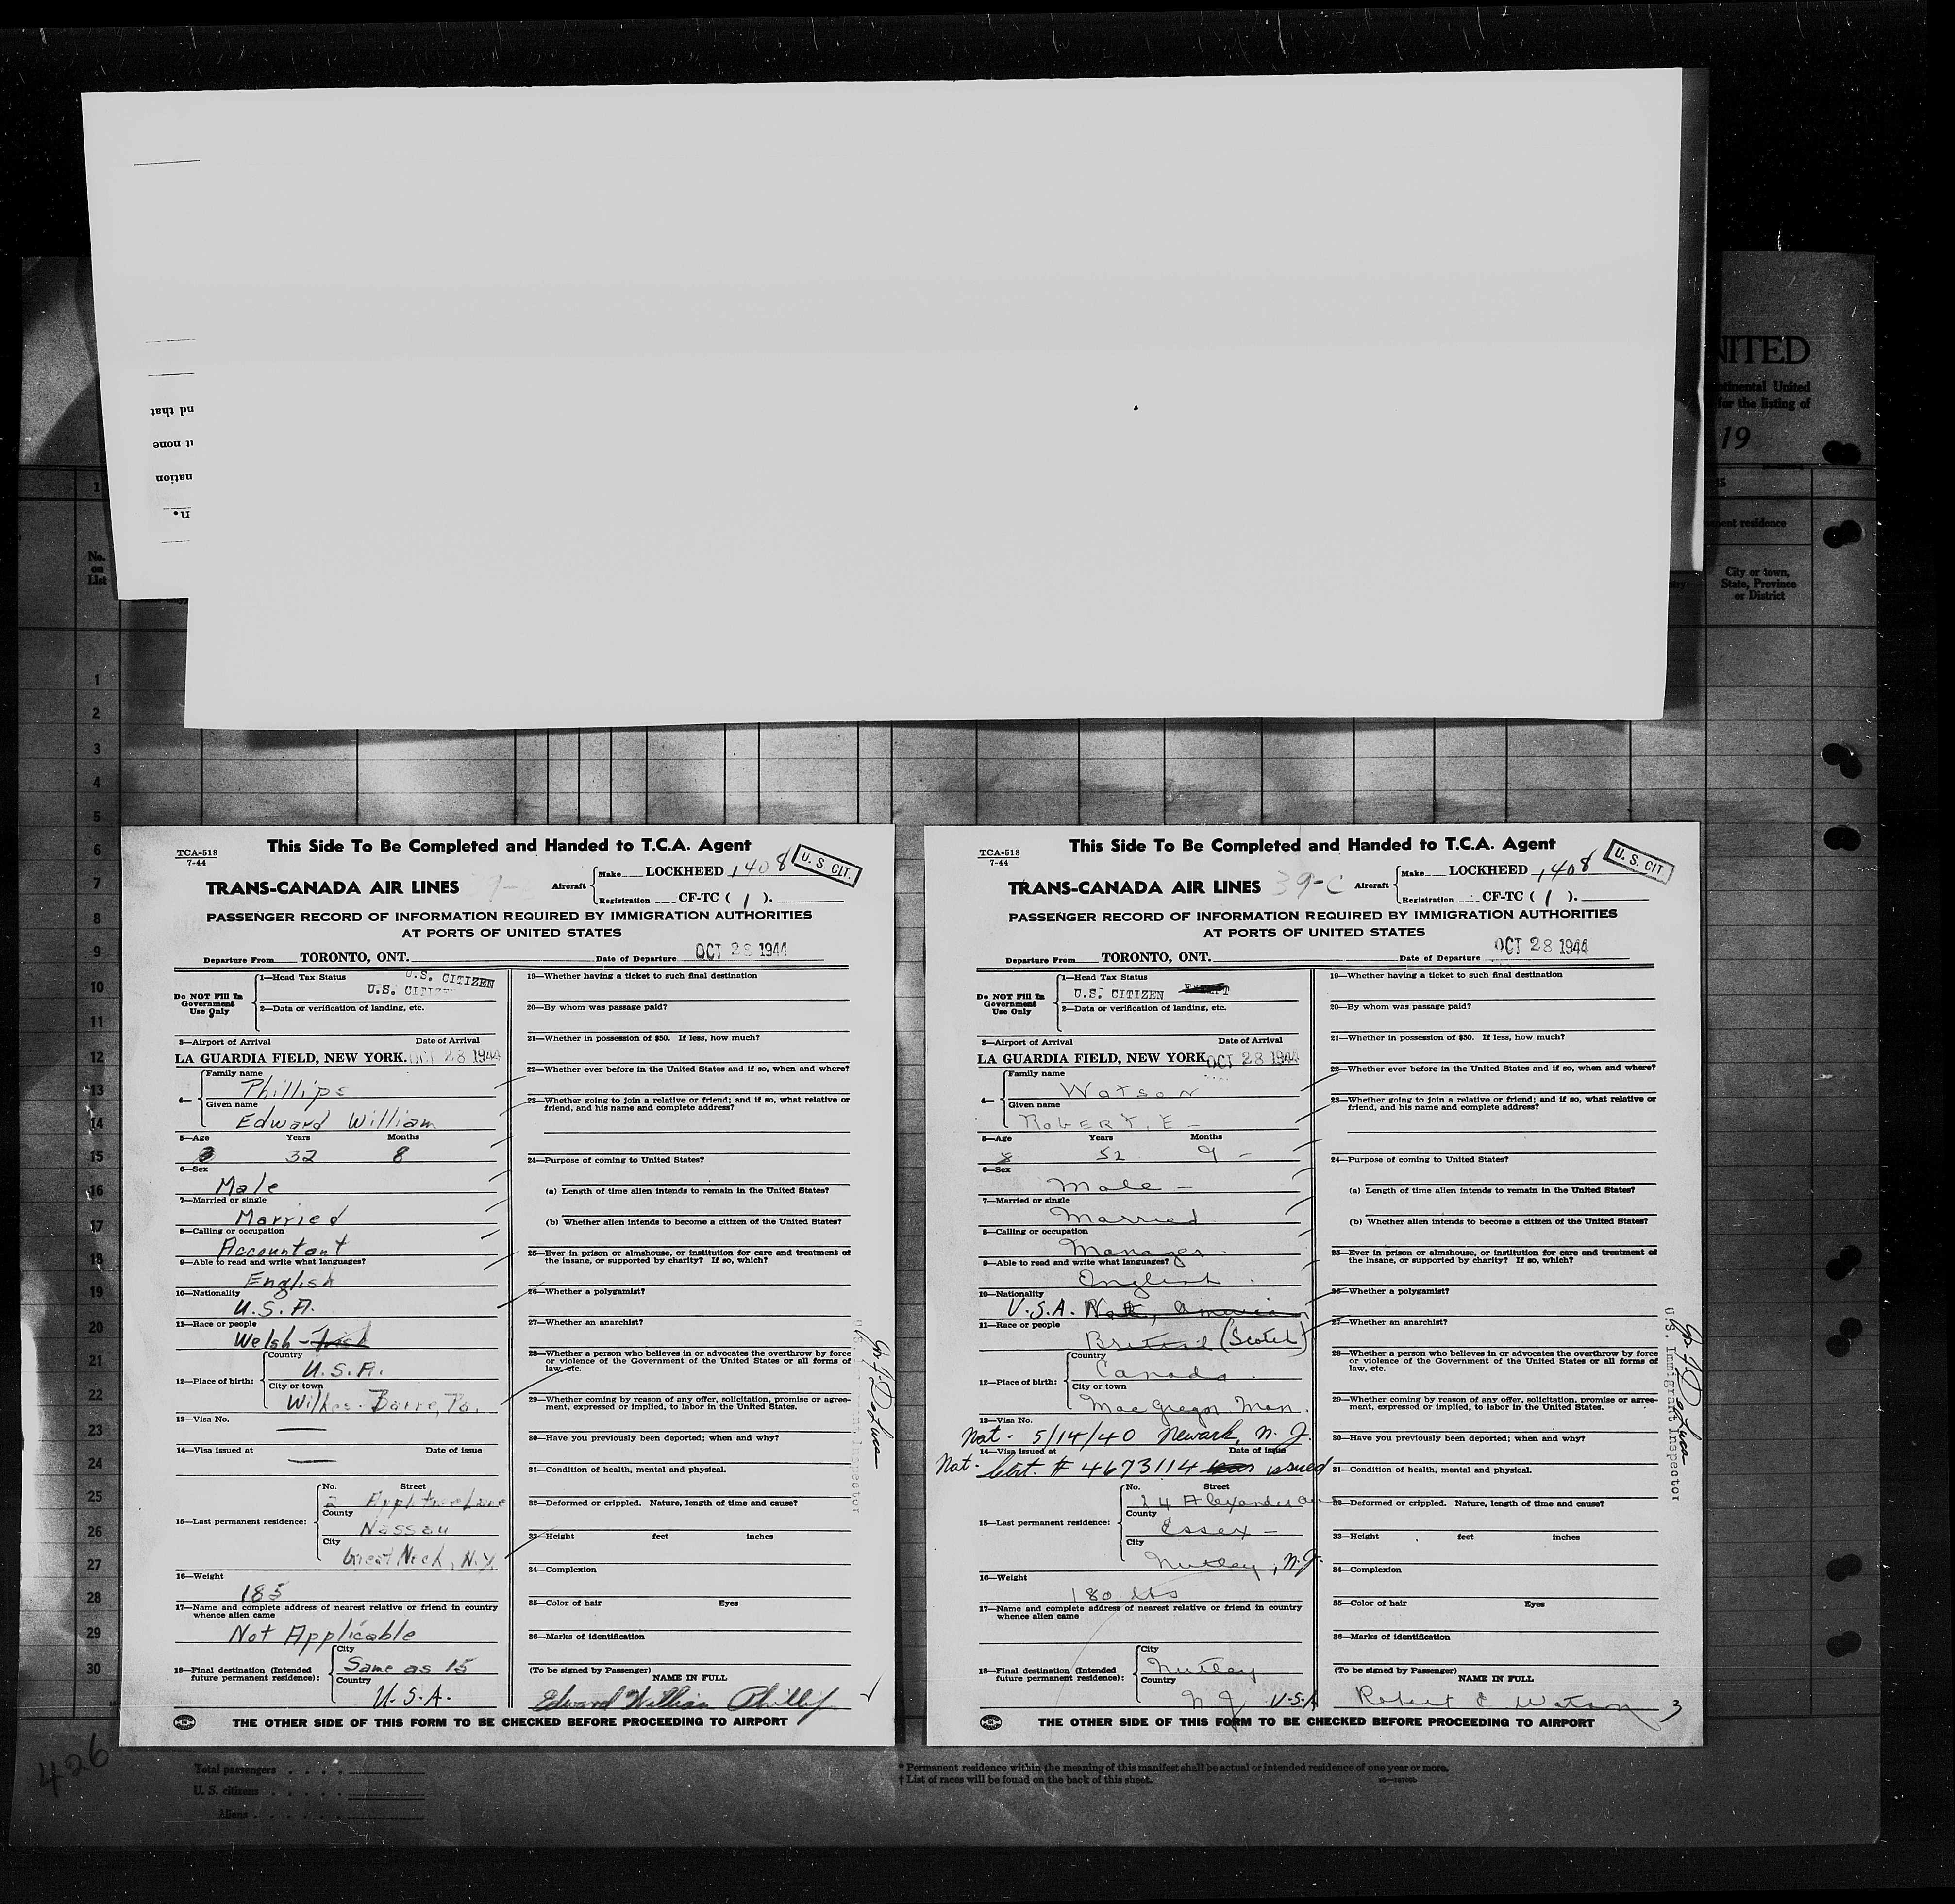 nd that
t none
nation
n.
NITED
ntinental United
for the listing of
19
1
No.
on
List
nent residence
City or town,
State, Province
or District
1
2
3
4
5
6
7
8
9
10
11
12
13
14
15
16
17
18
19
20
21
22
23
24
25
26
27
28
29
30
This Side To Be Completed and Handed to T.C.A. Agent
TCA-518
7-44
Make LOCKHEED 1408
U. S. CIT.
TRANS-CANADA AIR LINES
Aircraft
Registration CF-TC ( 1 ).
PASSENGER RECORD OF INFORMATION REQUIRED BY IMMIGRATION AUTHORITIES
AT PORTS OF UNITED STATES
Departure From TORONTO, ONT. Date of Departure OCT 28 1944
Do NOT Fill In
Government
Use Only
1—Head Tax Status
U.S. CITIZEN
U.S. CITIZEN
2—Data or verification of landing, etc.
3—Airport of Arrival Date of Arrival
LA GUARDIA FIELD, NEW YORK. OCT 28 1944
4—
Family name
Phillips
Given name
Edward William
5—Age Years Months
32 8
6—Sex
Male
7—Married or single
Married
8—Calling or occupation
Accountant
9—Able to read and write what languages?
English
10—Nationality
U.S.A.
11—Race or people
Welsh - Irish
12—Place of birth:
Country
U.S.A.
City or town
Wilkes-Barre, Pa.
13—Visa No.
—
14—Visa issued at Date of issue
—
15—Last permanent residence:
No. Street
2 Appletree Lane
County
Nassau
City
Great Neck, N.Y.
16—Weight
185
17—Name and complete address of nearest relative or friend in country
whence alien came
Not Applicable
18—Final destination (Intended
future permanent residence):
City
Same as 15
Country
U.S.A.
19—Whether having a ticket to such final destination
20—By whom was passage paid?
21—Whether in possession of $50. If less, how much?
22—Whether ever before in the United States and if so, when and where?
23—Whether going to join a relative or friend; and if so, what relative or
friend, and his name and complete address?
24—Purpose of coming to United States?
(a) Length of time alien intends to remain in the United States?
(b) Whether alien intends to become a citizen of the United States?
25—Ever in prison or almshouse, or institution for care and treatment of
the insane, or supported by charity? If so, which?
26—Whether a polygamist?
27—Whether an anarchist?
28—Whether a person who believes in or advocates the overthrow by force
or violence of the Government of the United States or all forms of
law, etc.
29—Whether coming by reason of any offer, solicitation, promise or agree-
ment, expressed or implied, to labor in the United States.
30—Have you previously been deported; when and why?
31—Condition of health, mental and physical.
32—Deformed or crippled. Nature, length of time and cause?
33—Height feet inches
34—Complexion
35—Color of hair Eyes
36—Marks of identification
(To be signed by Passenger)
NAME IN FULL
Edward William Phillips
THE OTHER SIDE OF THIS FORM TO BE CHECKED BEFORE PROCEEDING TO AIRPORT
This Side To Be Completed and Handed to T.C.A. Agent
TCA-518
7-44
Make LOCKHEED 1408
U. S. CIT
TRANS-CANADA AIR LINES 39-C
Aircraft
Registration CF-TC ( 1 ).
PASSENGER RECORD OF INFORMATION REQUIRED BY IMMIGRATION AUTHORITIES
AT PORTS OF UNITED STATES
Departure From TORONTO, ONT. Date of Departure OCT 28 1944
Do NOT Fill In
Government
Use Only
1—Head Tax Status
U.S. CITIZEN
2—Data or verification of landing, etc.
3—Airport of Arrival Date of Arrival
LA GUARDIA FIELD, NEW YORK. OCT 28 1944
4—
Family name
Watson
Given name
Robert, E -
5—Age Years Months
52 9 -
6—Sex
Male -
7—Married or single
Married
8—Calling or occupation
Manager
9—Able to read and write what languages?
English
10—Nationality
U.S.A.
11—Race or people
(Scotch)
12—Place of birth:
Country
Canada
City or town
MacGregor Man.
13—Visa No.
Nat - 5/14/40 Newark, N.J.
14—Visa issued at Date of issue
Nat. Cert. # 4673114 issued
15—Last permanent residence:
No. Street
24 Alexander Ave
County
Essex -
City
Nutley, N.J.
16—Weight
180 lbs
17—Name and complete address of nearest relative or friend in country
whence alien came
18—Final destination (Intended
future permanent residence):
City
Nutley
Country
N J U.S.A
19—Whether having a ticket to such final destination
20—By whom was passage paid?
21—Whether in possession of $50. If less, how much?
22—Whether ever before in the United States and if so, when and where?
23—Whether going to join a relative or friend; and if so, what relative or
friend, and his name and complete address?
24—Purpose of coming to United States?
(a) Length of time alien intends to remain in the United States?
(b) Whether alien intends to become a citizen of the United States?
25—Ever in prison or almshouse, or institution for care and treatment of
the insane, or supported by charity? If so, which?
26—Whether a polygamist?
27—Whether an anarchist?
28—Whether a person who believes in or advocates the overthrow by force
or violence of the Government of the United States or all forms of
law, etc.
29—Whether coming by reason of any offer, solicitation, promise or agree-
ment, expressed or implied, to labor in the United States.
30—Have you previously been deported; when and why?
31—Condition of health, mental and physical.
32—Deformed or crippled. Nature, length of time and cause?
33—Height feet inches
34—Complexion
35—Color of hair Eyes
36—Marks of identification
(To be signed by Passenger)
NAME IN FULL
Robert E Watson 3
U.S. Immigrant Inspector
THE OTHER SIDE OF THIS FORM TO BE CHECKED BEFORE PROCEEDING TO AIRPORT
426
Total passengers
U. S. citizens
Aliens
* Permanent residence within the meaning of this manifest shall be actual or intended residence of one year or more.
† List of races will be found on the back of this sheet.